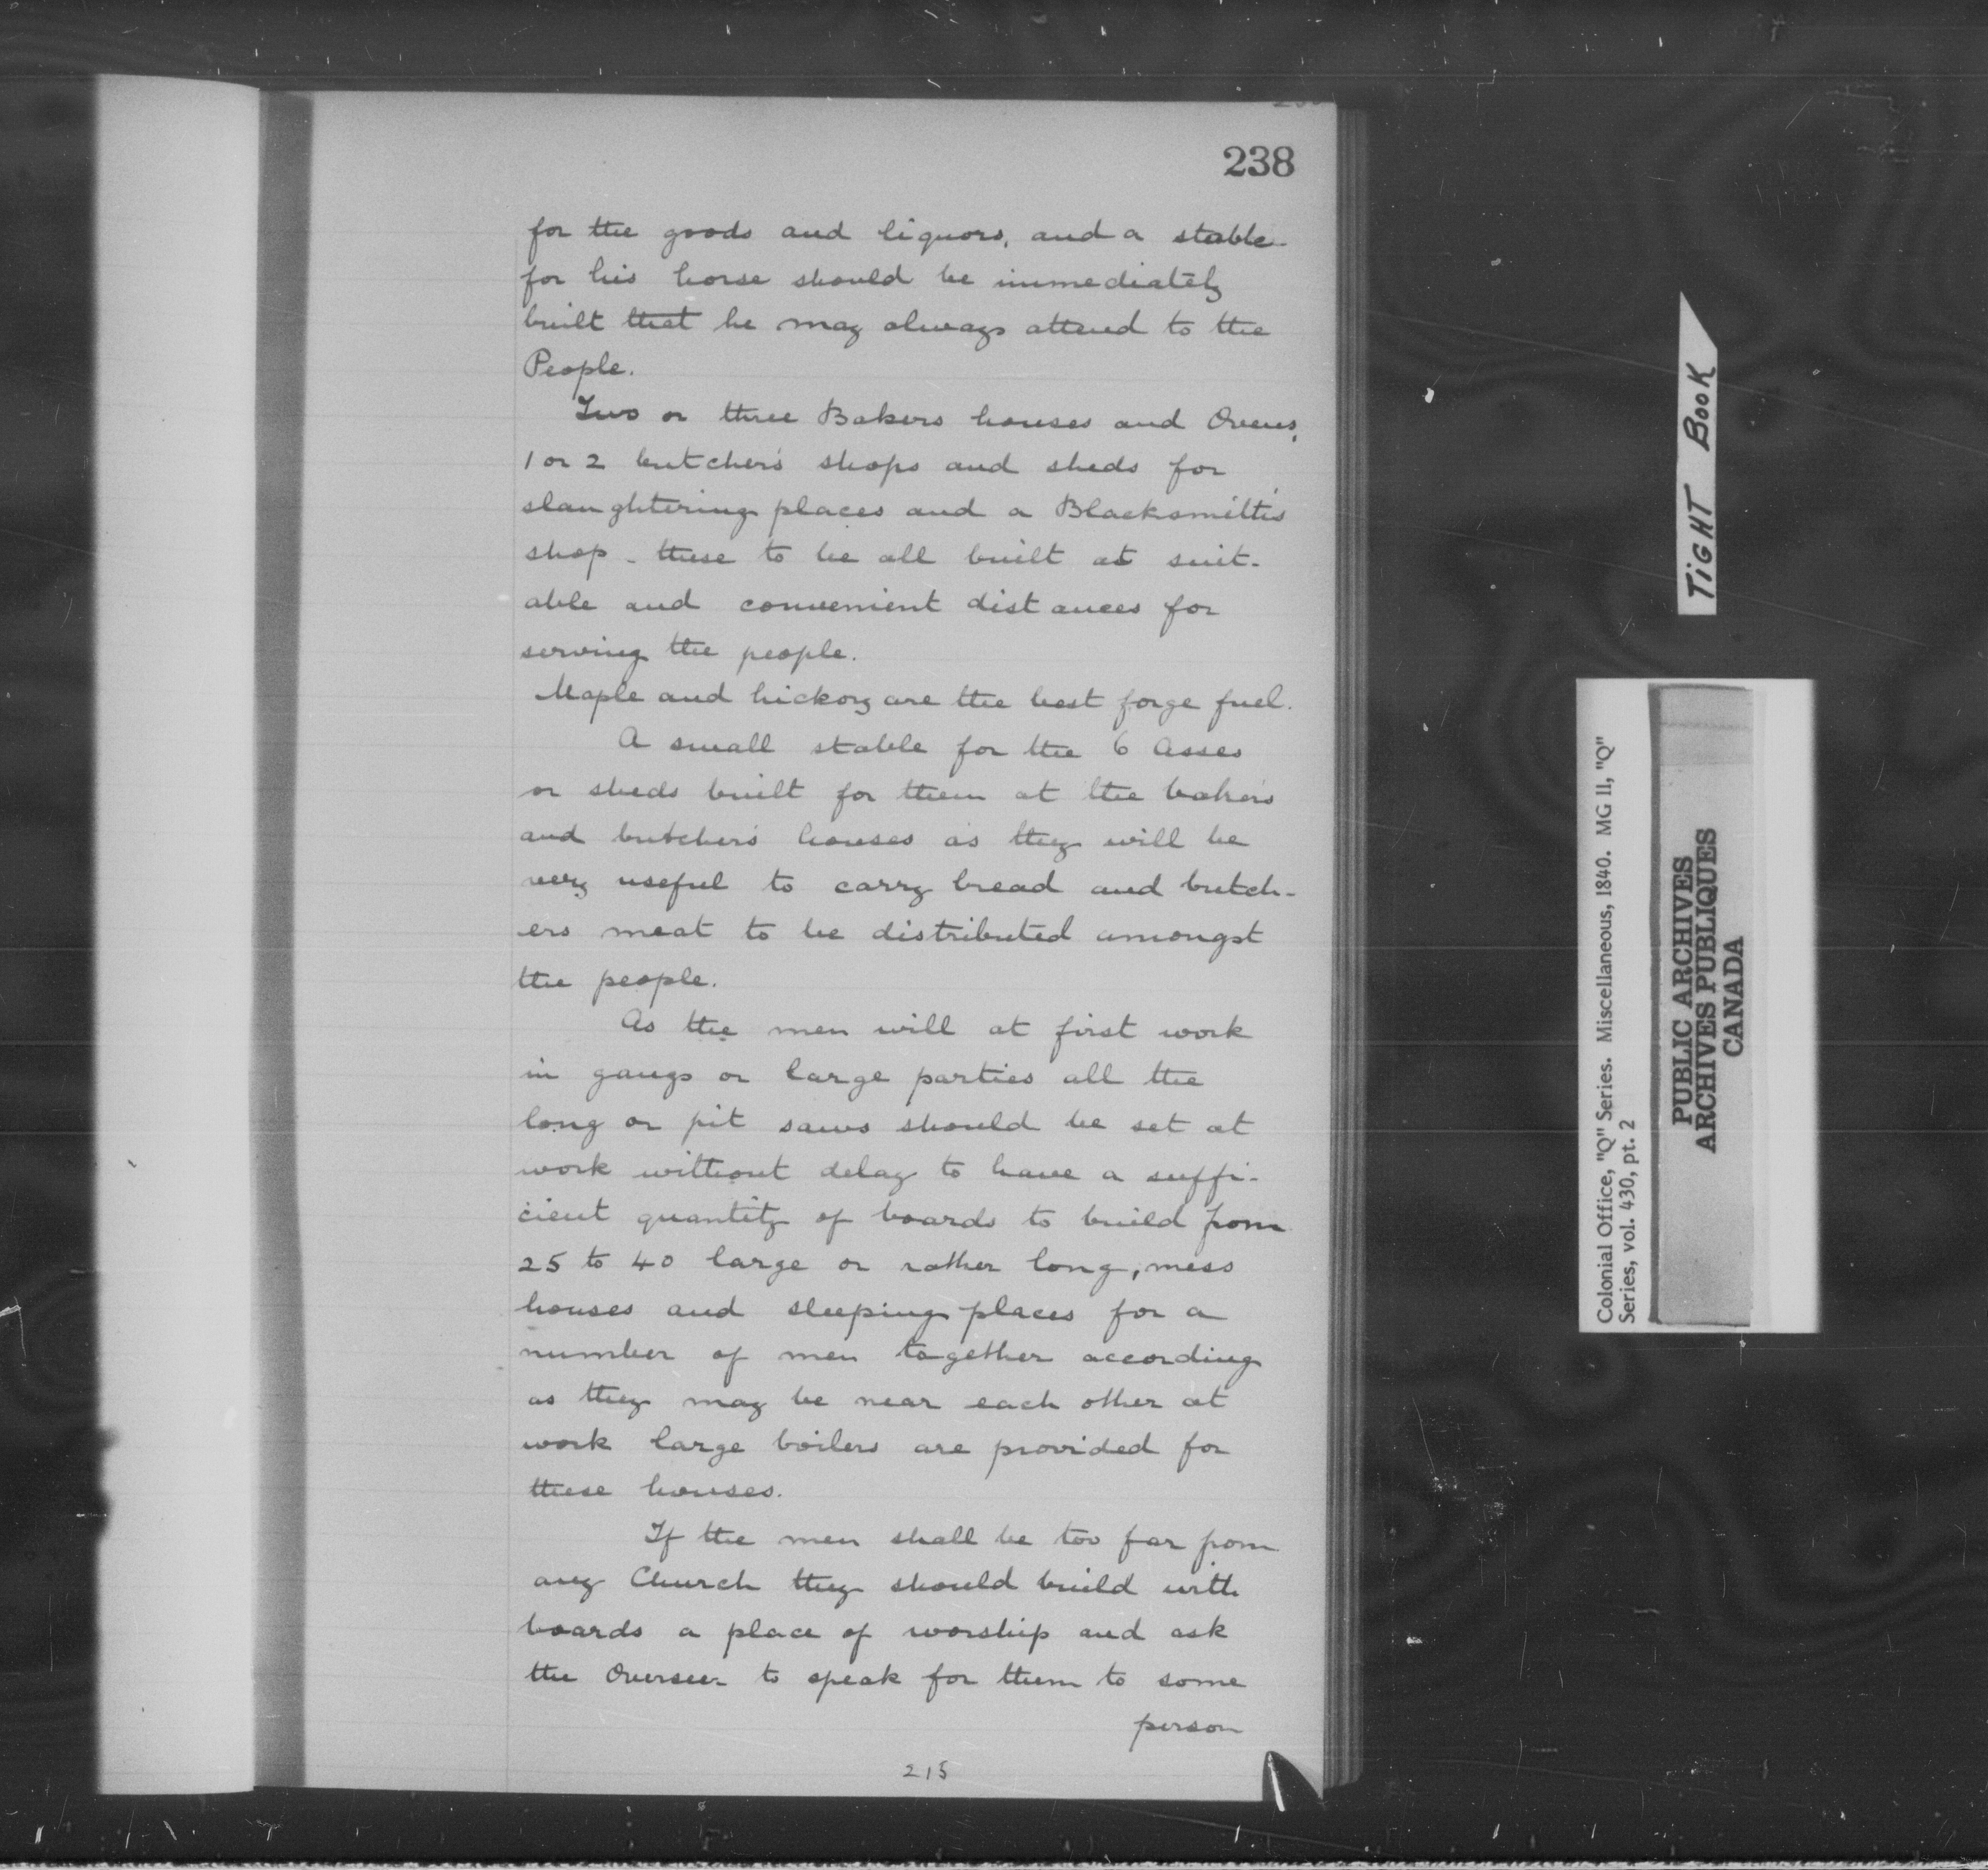 238
for the goods and liquors, and a stable
for his horse should be immediately
built that he may always attend to the
People.
Two or three Bakers houses and Ovens,
1 or 2 butcher's shops and sheds for
slaughtering places and a Blacksmith's
shop - these to be all built at suit-
able and convenient distances for
serving the people.
Maple and hickory are the best forge fuel.
A small stable for the 6 Asses
or sheds built for them at the baker's
and butcher's houses as they will be
very useful to carry bread and butch-
ers meat to be distributed amongst
the people.
As the men will at first work
in gangs or large parties all the
long or pit saws should be set at
work without delay to have a suffi-
cient quantity of boards to build from
25 to 40 large or rather long, mess
houses and sleeping places for a
number of men together according
as they may be near each other at
work large boilers are provided for
these houses.
If the men shall be too far from
any Church they should build with
boards a place of worship and ask
the Overseer to speak for them to some
person
215
TIGHT BOOK
Colonial Office, "Q" Series. Miscellaneous, 1840. MG 11, "Q"
Series, vol. 430, pt. 2
PUBLIC ARCHIVES
ARCHIVES PUBLIQUES
CANADA